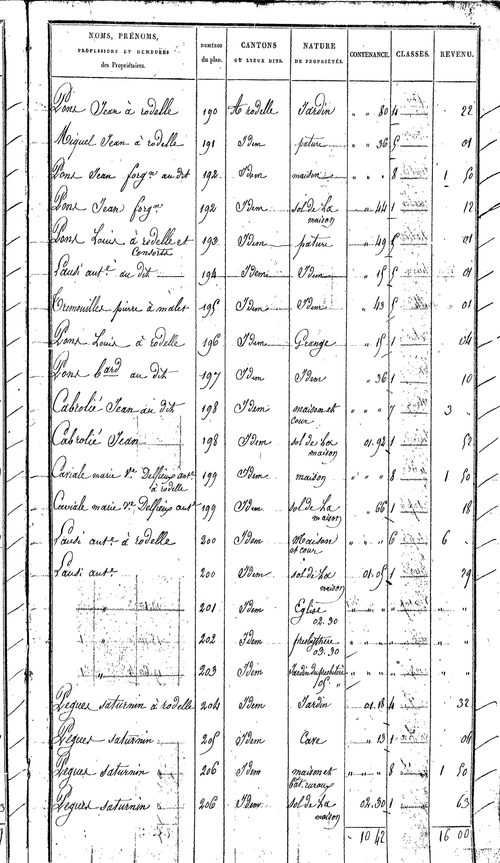 NOMS, PRÉNOMS, PROFESSIONS ET DEMEURES des Propriétaires. NUMÉROS du plan. CANTONS OU LIEUX DITS. NATURE DE PROPRIÉTÉS. CONTENANCE. CLASSES. REVENU.
Pons Jean à rodelle 190 A rodelle Jardin " " 80 4 22
Miquel Jean à rodelle 191 Idem pature " " 36 5 01
Pons Jean forgn au dit 192 Idem maison " " " 8 1 50
Pons Jean forgn 192 Idem sol de La " 44 1 12
maison
Pons Louis à rodelle et 193 Idem pature " 49 5 01
Consorts
Lausi ante au dit 194 Idem Idem " 15 5 01
Tremouilles pierre à malet 195 Idem Idem " 43 5 01
Pons Louis à rodelle 196 Idem Grange " 15 1 04
Pons bard au dit 197 Idem Idem " 36 1 10
Cabrolié Jean au dit 198 Idem maison et " " " 7 3 "
cour
Cabrolié Jean 198 Idem sol de La 01.92 1 52
maison
Caviale marie Ve Delfieux ante 199 Idem maison " " " 8 1 50
à rodelle
Caviale marie Ve Delfieux ante 199 Idem sol de La " 66 1 18
maison
Lausi ante à rodelle 200 Idem Maison " " " 6 6 "
et cour
Lausi ante 200 Idem sol de La 01.05 1 29
maison
201 Idem Eglise " " " " "
02.30
202 Idem presbythère " " " " "
03.30
203 Idem Jardin du presbitère " " " " "
05 "
Pegues saturnin à rodelle 204 Idem Jardin 01.18 4 32
Pegues saturnin 205 Idem Cave " 13 1 04
Pegues saturnin 206 Idem maison et " " " 8 1 50
bat. ruraux
Pegues saturnin 206 Idem sol de La 02.30 1 63
maison
10 42 16 00